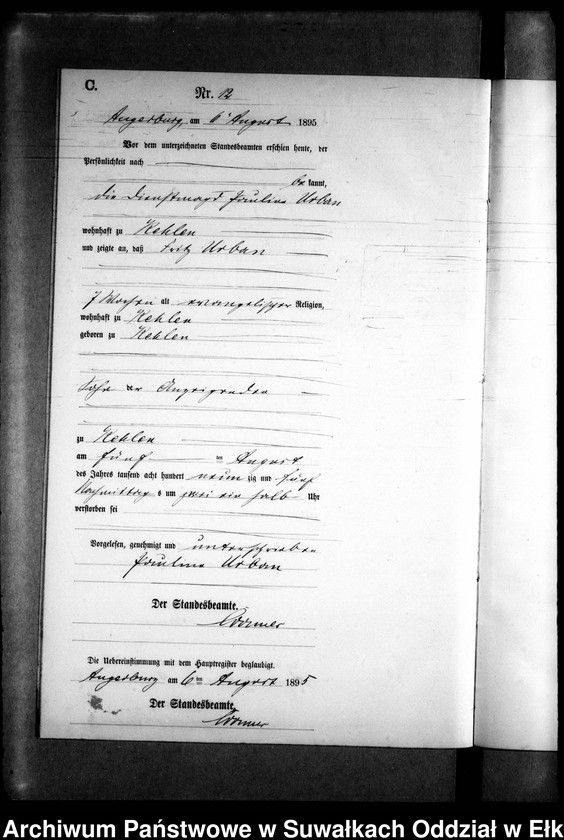 C.
Nr. 12
Angerburg, am 6 August 1895
Vor dem unterzeichneten Standesbeamten erschien heute, der
Persönlichkeit nach
be kannt,
die Dienstmagd Pauline Urban
wohnhaft zu Kehlen
und zeigte an, daß Fritz Urban
7 Wochen alt evangelischer Religion,
wohnhaft zu Kehlen
geboren zu Kehlen
Sohn der Anzeigenden
zu Kehlen
am fünf ten August
des Jahres tausend acht hundert neun zig und fünf
Nachmittag s um zwei ein halb Uhr
verstorben sei
Vorgelesen, genehmigt und unterschrieben
Pauline Urban
Der Standesbeamte.
Die Uebereinstimmung mit dem Hauptregister beglaubigt.
Angerburg am 6ten August 1895
Der Standesbeamte.
Archiwum Państwowe w Suwałkach Oddział w Ełk